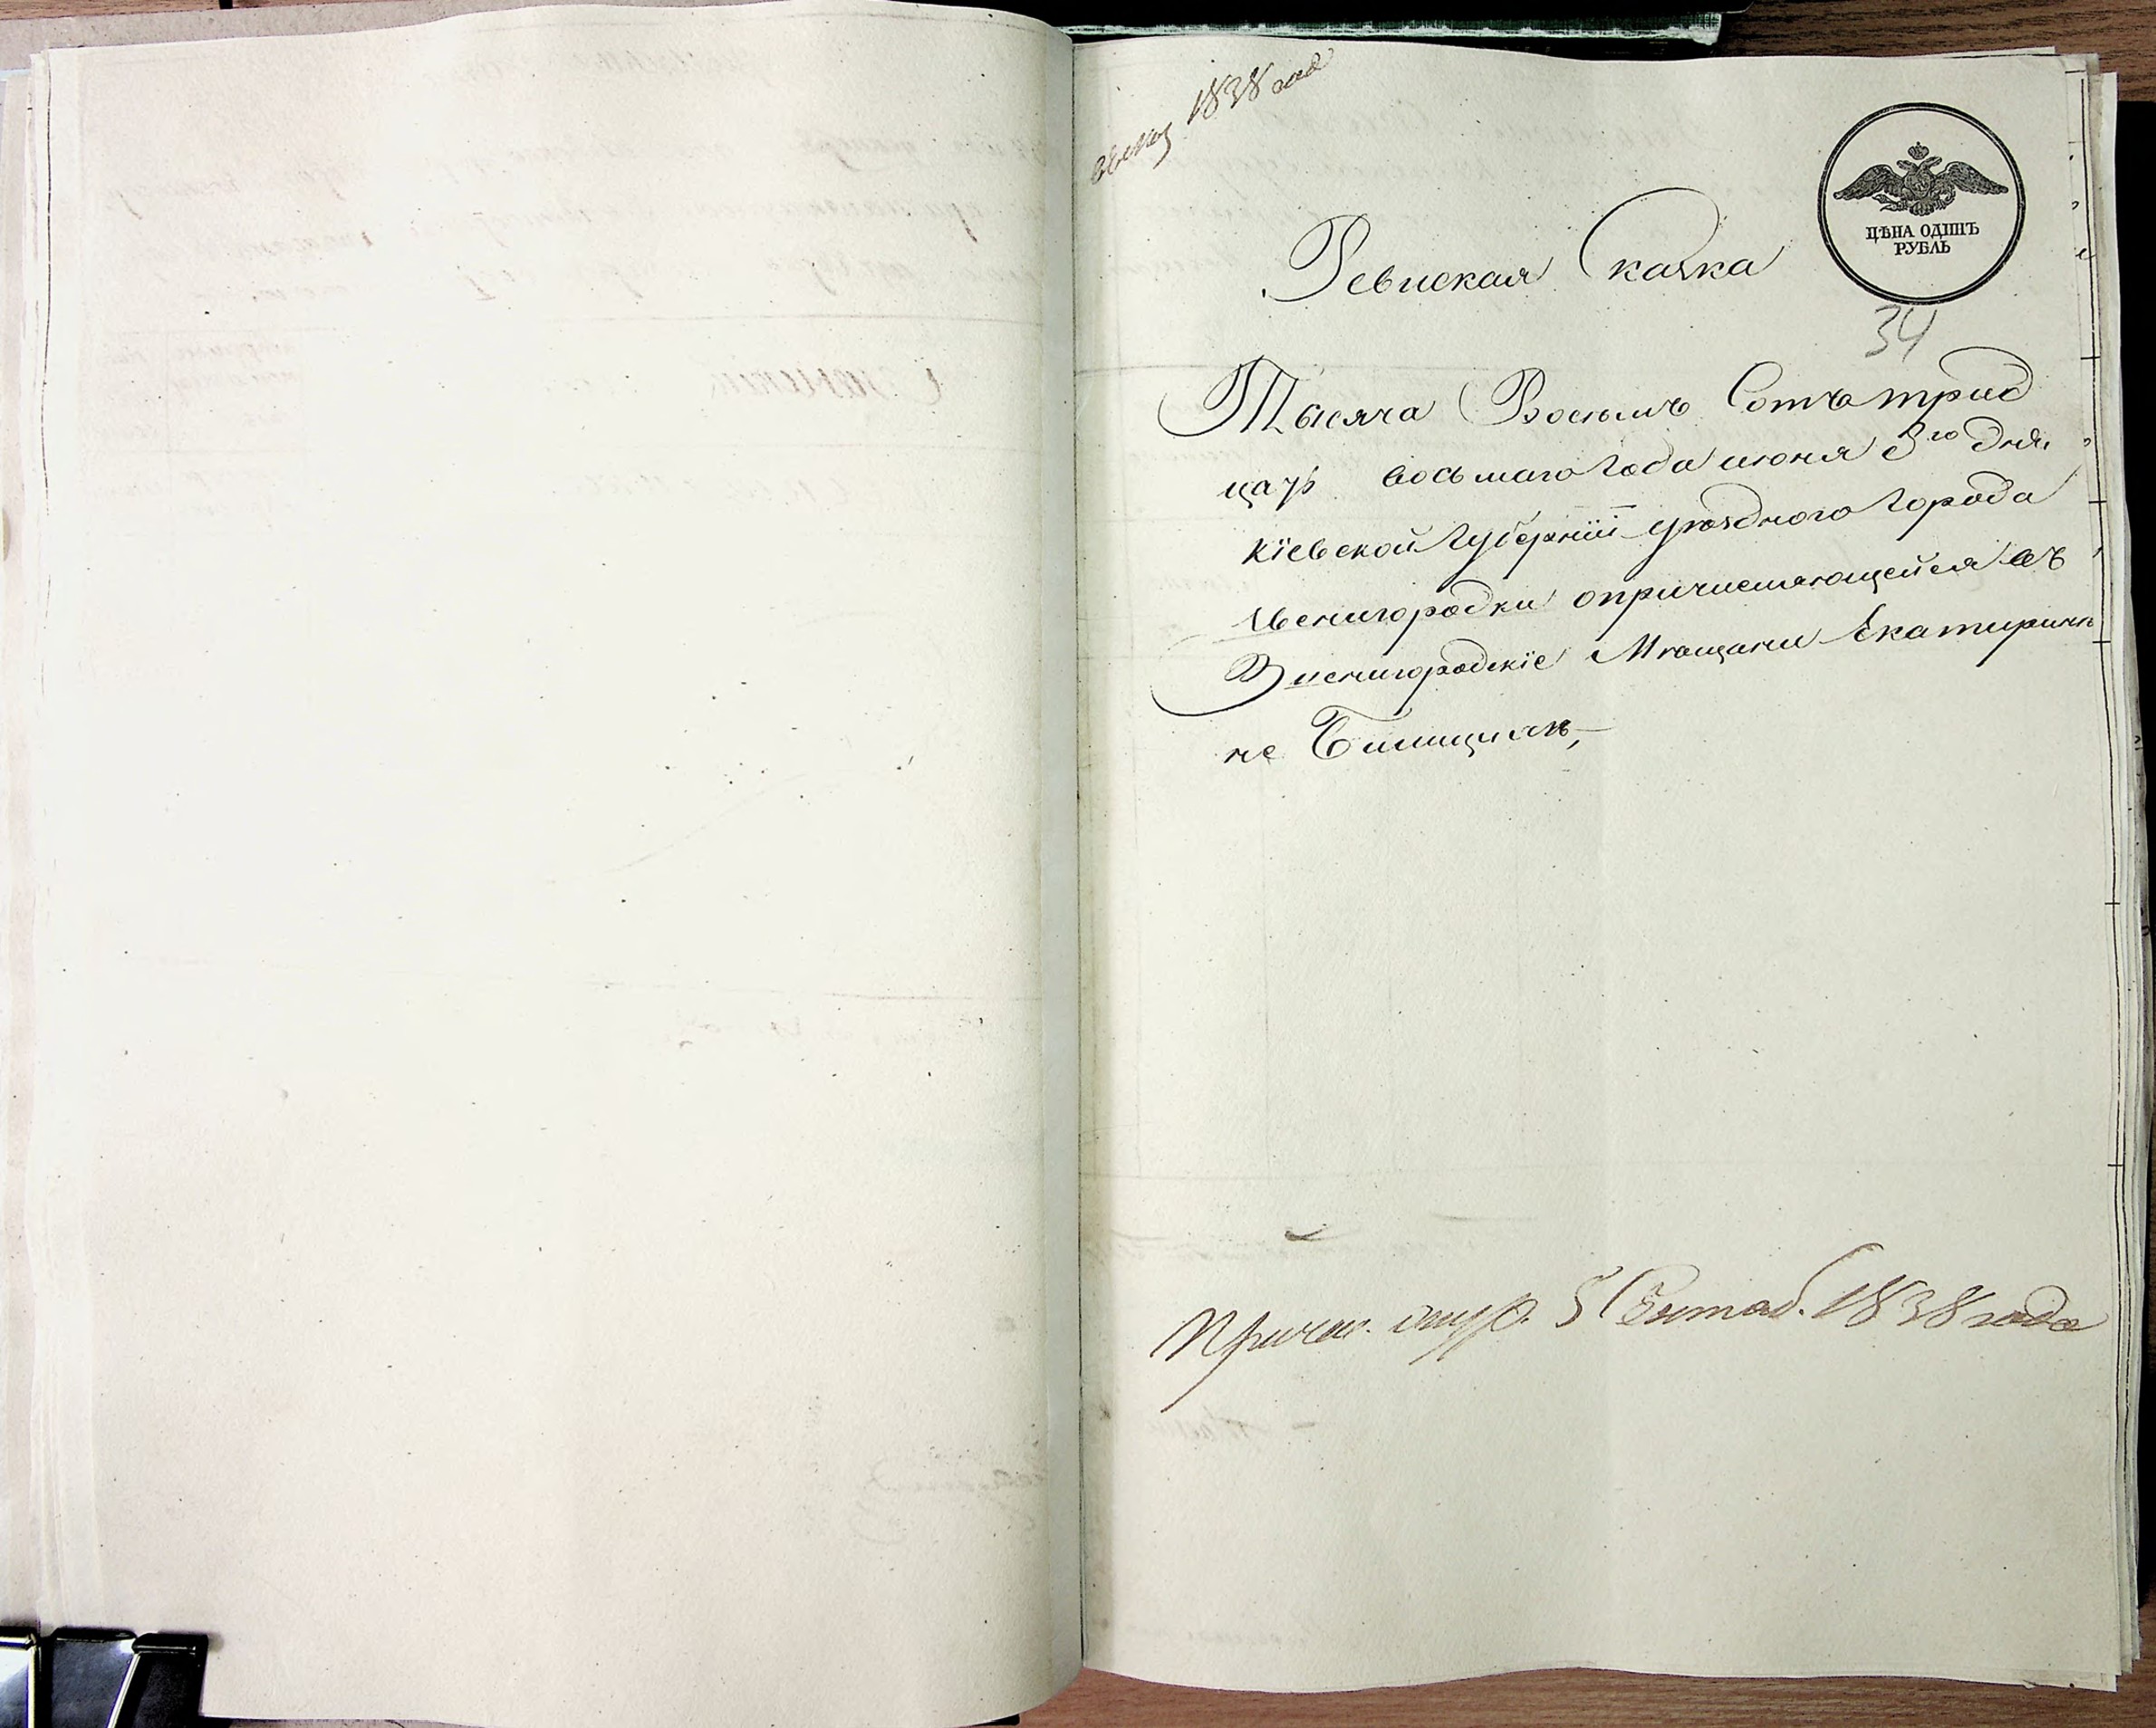 1838 года
ЦѢНА ОДИНЪ
РУБЛЬ
Ревиская Скаска
34
Тысяча Восемъ Сотъ трид
цать восьмаго Года июня 3го дня
Кіевской Губерніи уѣздного Города
Звенигородки опричисляющейся въ
Звенигородскіе Мѣщани Екатирини
не
5 Сентяб. 1838 года